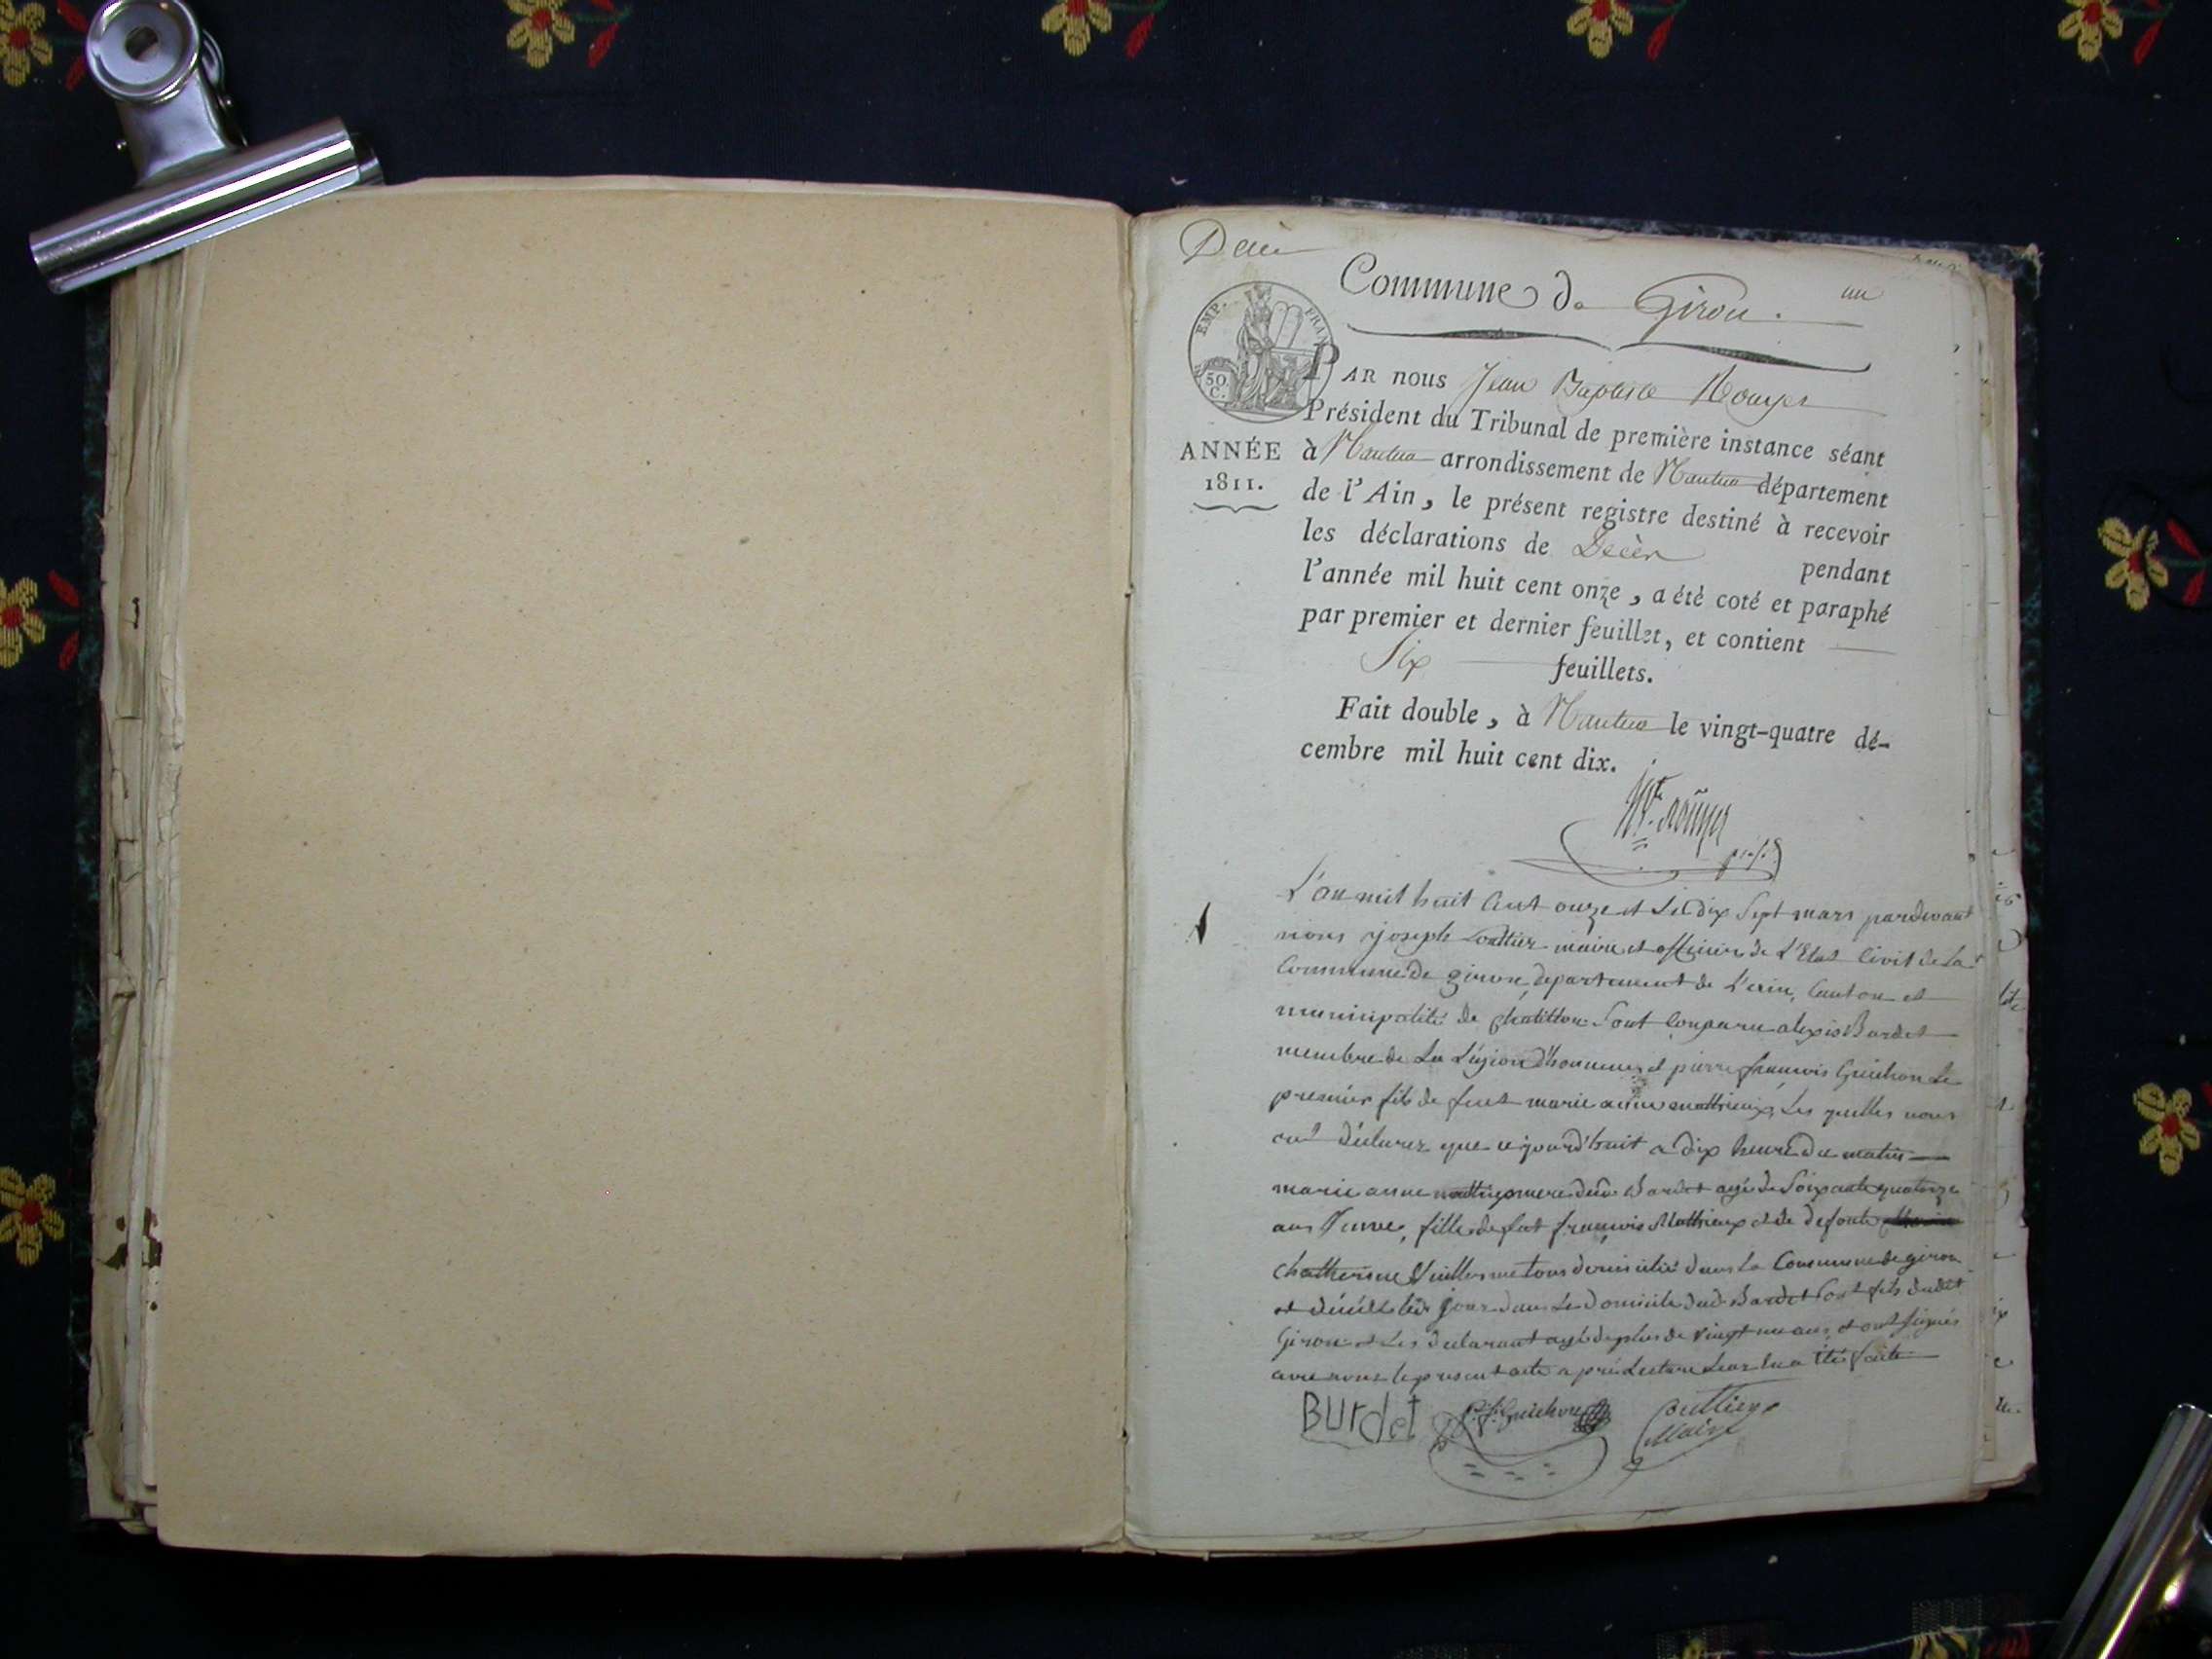 Commune de Giron.
un
EMP. FRAN
50
C.
ANNÉE
1811.
PAR nous Jean Baptiste Rouyer
Président du Tribunal de première instance séant
à Nantua arrondissement de Nantua département
de l'Ain, le présent registre destiné à recevoir
les déclarations de Décès pendant
l'année mil huit cent onze, a été coté et paraphé
par premier et dernier feuillet, et contient
Six feuillets.
Fait double, à Nantua le vingt-quatre dé-
cembre mil huit cent dix.
L'an mil huit Cent onze et Le dix Sept mars pardevant
nous joseph maire et officier de L'Etat Civil de La
Commune de giron departement de L'ain, Canton et
municipalité de Chatillon Sont Comparu alexis Burdet
membre de La Légion d'honneur et pierre françois Guichon Le
premier fils de feue marie anne mathieux, Les quelles nous
ont déclarez que ajourd'huit a dix heure du matin
marie anne mere dud. Burdet agé de Soixante quatorze
ans veuve, fille de fut françois Mathieux et de defonte
Chatherine Vuillerme tous domicilié dans La Commune de giron
et décédé led. jour dans Le domicile dud. Burdet Son fils dudit
Giron et Les declarant agé de plus de vingt un ans, et ont signés
avec nous le present acte a pré Lecture Leur en a été faite
Burdet P. f. Guichon
Maire